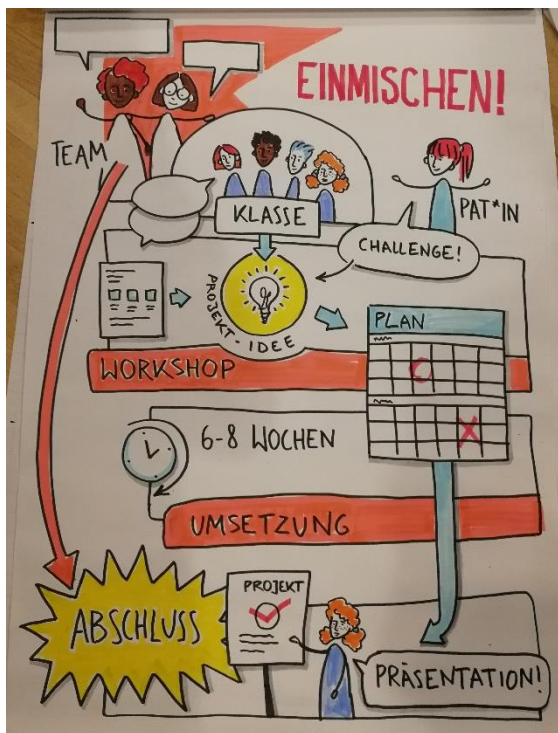 EINMISCHEN!
TEAM
KLASSE
PAT*IN
CHALLENGE!
PROJEKT-IDEE
PLAN
WORKSHOP
6-8 WOCHEN
UMSETZUNG
ABSCHLUSS
PROJEKT
PRÄSENTATION!